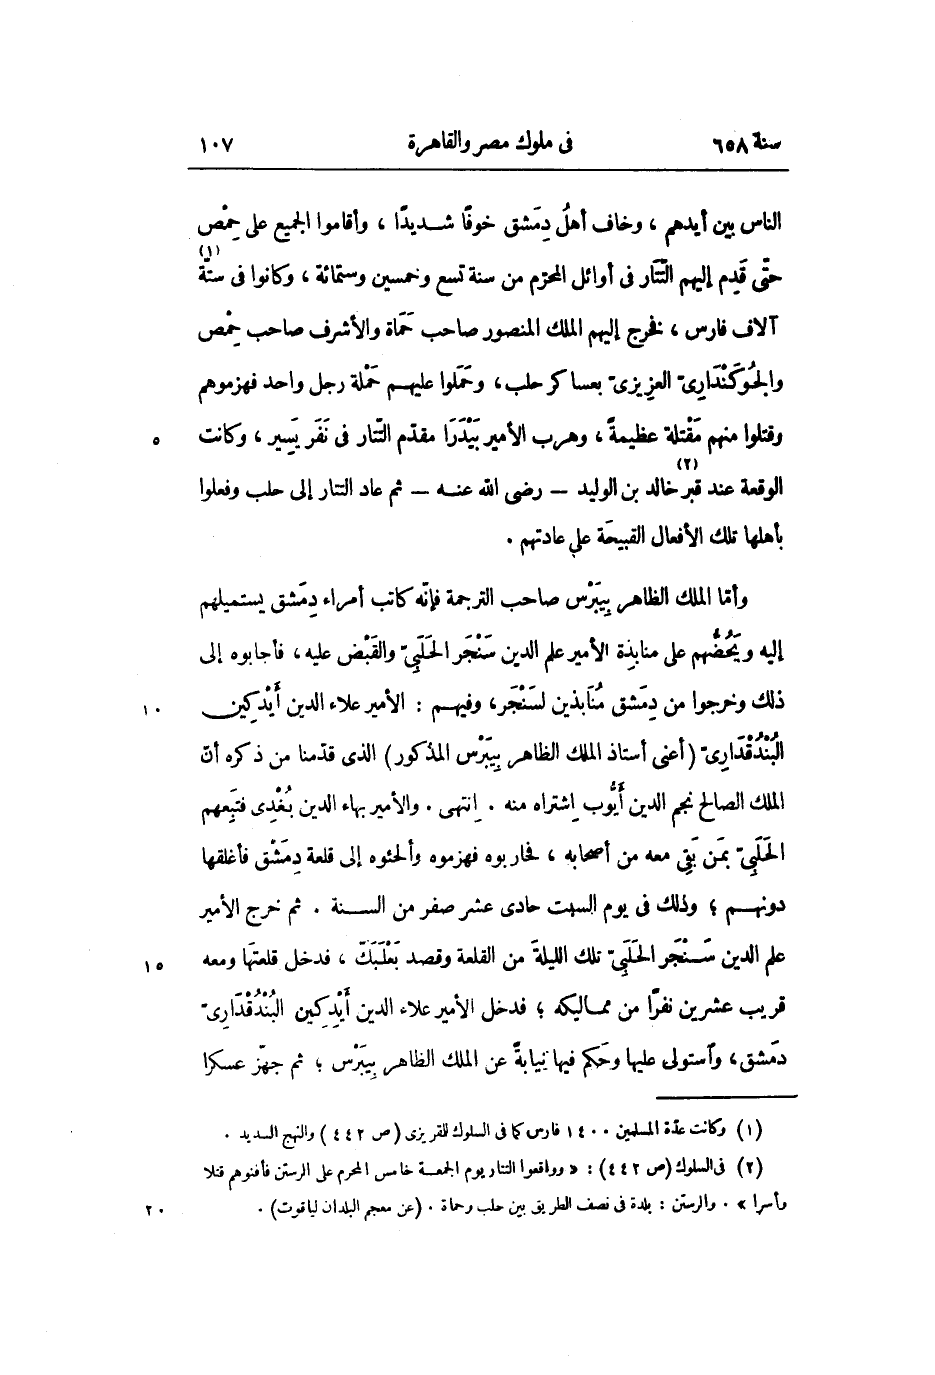 سنة ٦٥٨ فى ملوك مصر والقاهرة ١٠٧
الناس بين أيديهم ، وخاف أهلُ دِمَشق خوفًا شديدًا ، وأقاموا الجميع على حِمْص
حتّى قَدِم إليهم التَّتَار فى أوائل المحرّم من سنة تسع وخمسين وستمائة ، وكانوا فى ستّة (١)
آلاف فارس ، فخرج إليهم الملك المنصور صاحب حَمَاة والأشرف صاحب حِمْص
والجُوكَنْدَارِىّ العزيزىّ بعساكر حلب ، وحَمَلوا عليهم حَمْلة رجل واحد فهزموهم
وقتلوا منهم مَقْتلة عظيمةً ، وهرب الأمير بَيْدَرَا مقدّم التّتار فى نَفَر يَسِير ، وكانت ٥
الوقعة عند قبر (٢) خالد بن الوليد — رضى الله عنه — ثم عاد التتار إلى حلب وفعلوا
بأهلها تلك الأفعال القبيحَة على عادتهم .
وأمّا الملك الظاهر بِيبَرْس صاحب الترجمة فإنّه كاتب أمراء دِمَشق يستميلهم
إليه ويَحُضُّهم على منابذة الأمير علم الدين سَنْجَر الحَلَبِىّ والقَبْض عليه ، فأجابوه إلى
ذلك وخرجوا من دِمَشق مُنَابذين لسَنْجَر ، وفيهم : الأمير علاء الدين أَيْدكِين ١٠
البُنْدُقْدَارِىّ (أعنى أستاذ الملك الظاهر بِيبَرْس المذكور) الذى قدّمنا من ذكره أنّ
الملك الصالح نجم الدين أَيُّوب اِشتراه منه . اِنتهى . والأمير بهاء الدين بُغْدِى فتَبِعهم
الحَلَبِىّ بمَن بَقِىَ معه من أصحابه ، فحاربوه فهزموه وألجئوه إلى قلعة دِمَشْق فأغلقها
دونهم ؛ وذلك فى يوم السبت حادى عشر صفر من السنة . ثم خرج الأمير
علم الدين سَنْجَر الحَلَبِىّ تلك الليلةَ من القلعة وقصد بَعْلَبَكّ ، فدخل قلعتَها ومعه ١٥
قريب عشرين نفرًا من مماليكه ؛ فدخل الأمير علاء الدين أَيْدكِين البُنْدُقْدَارِىّ
دمَشق ، وٱستولى عليها وحَكم فيها نِيابةً عن الملك الظاهر بِيبَرْس ؛ ثم جهّز عسكرا
(١) وكانت عدّة المسلمين ١٤٠٠ فارس كما فى السلوك للقريزى (ص ٤٤٢) والنهج السديد .
(٢) فى السلوك (ص ٤٤٢) : « وواقعوا التتار يوم الجمعة خامس المحرم على الرستن فأفنوهم قتلا
وأسرا » . والرستن : بلدة فى نصف الطريق بين حلب وحماة . (عن معجم البلدان لياقوت) . ٢٠